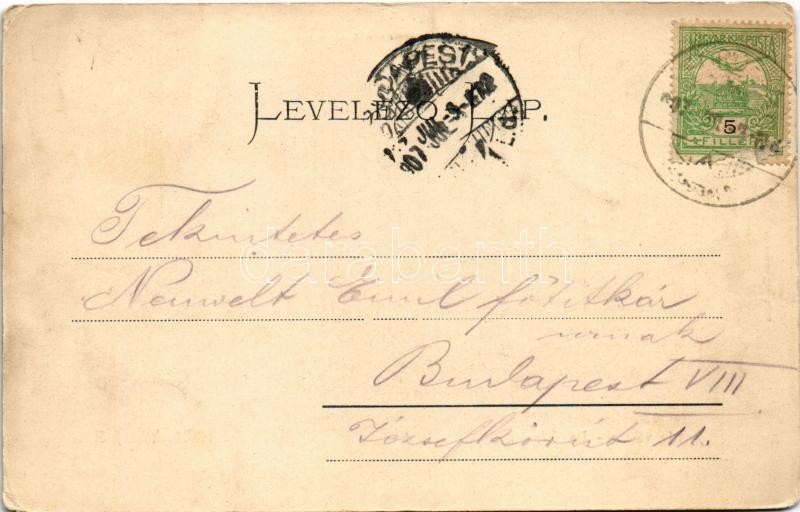 MAGYAR KIR. POSTA
5
FILLÉR
BUDAPEST
907 JUL
LEVELEZŐ LAP.
Tekintetes
Neuwelt Emil főtitkár
urnak
Budapest VIII
Józsefkörút 11.
darabanth